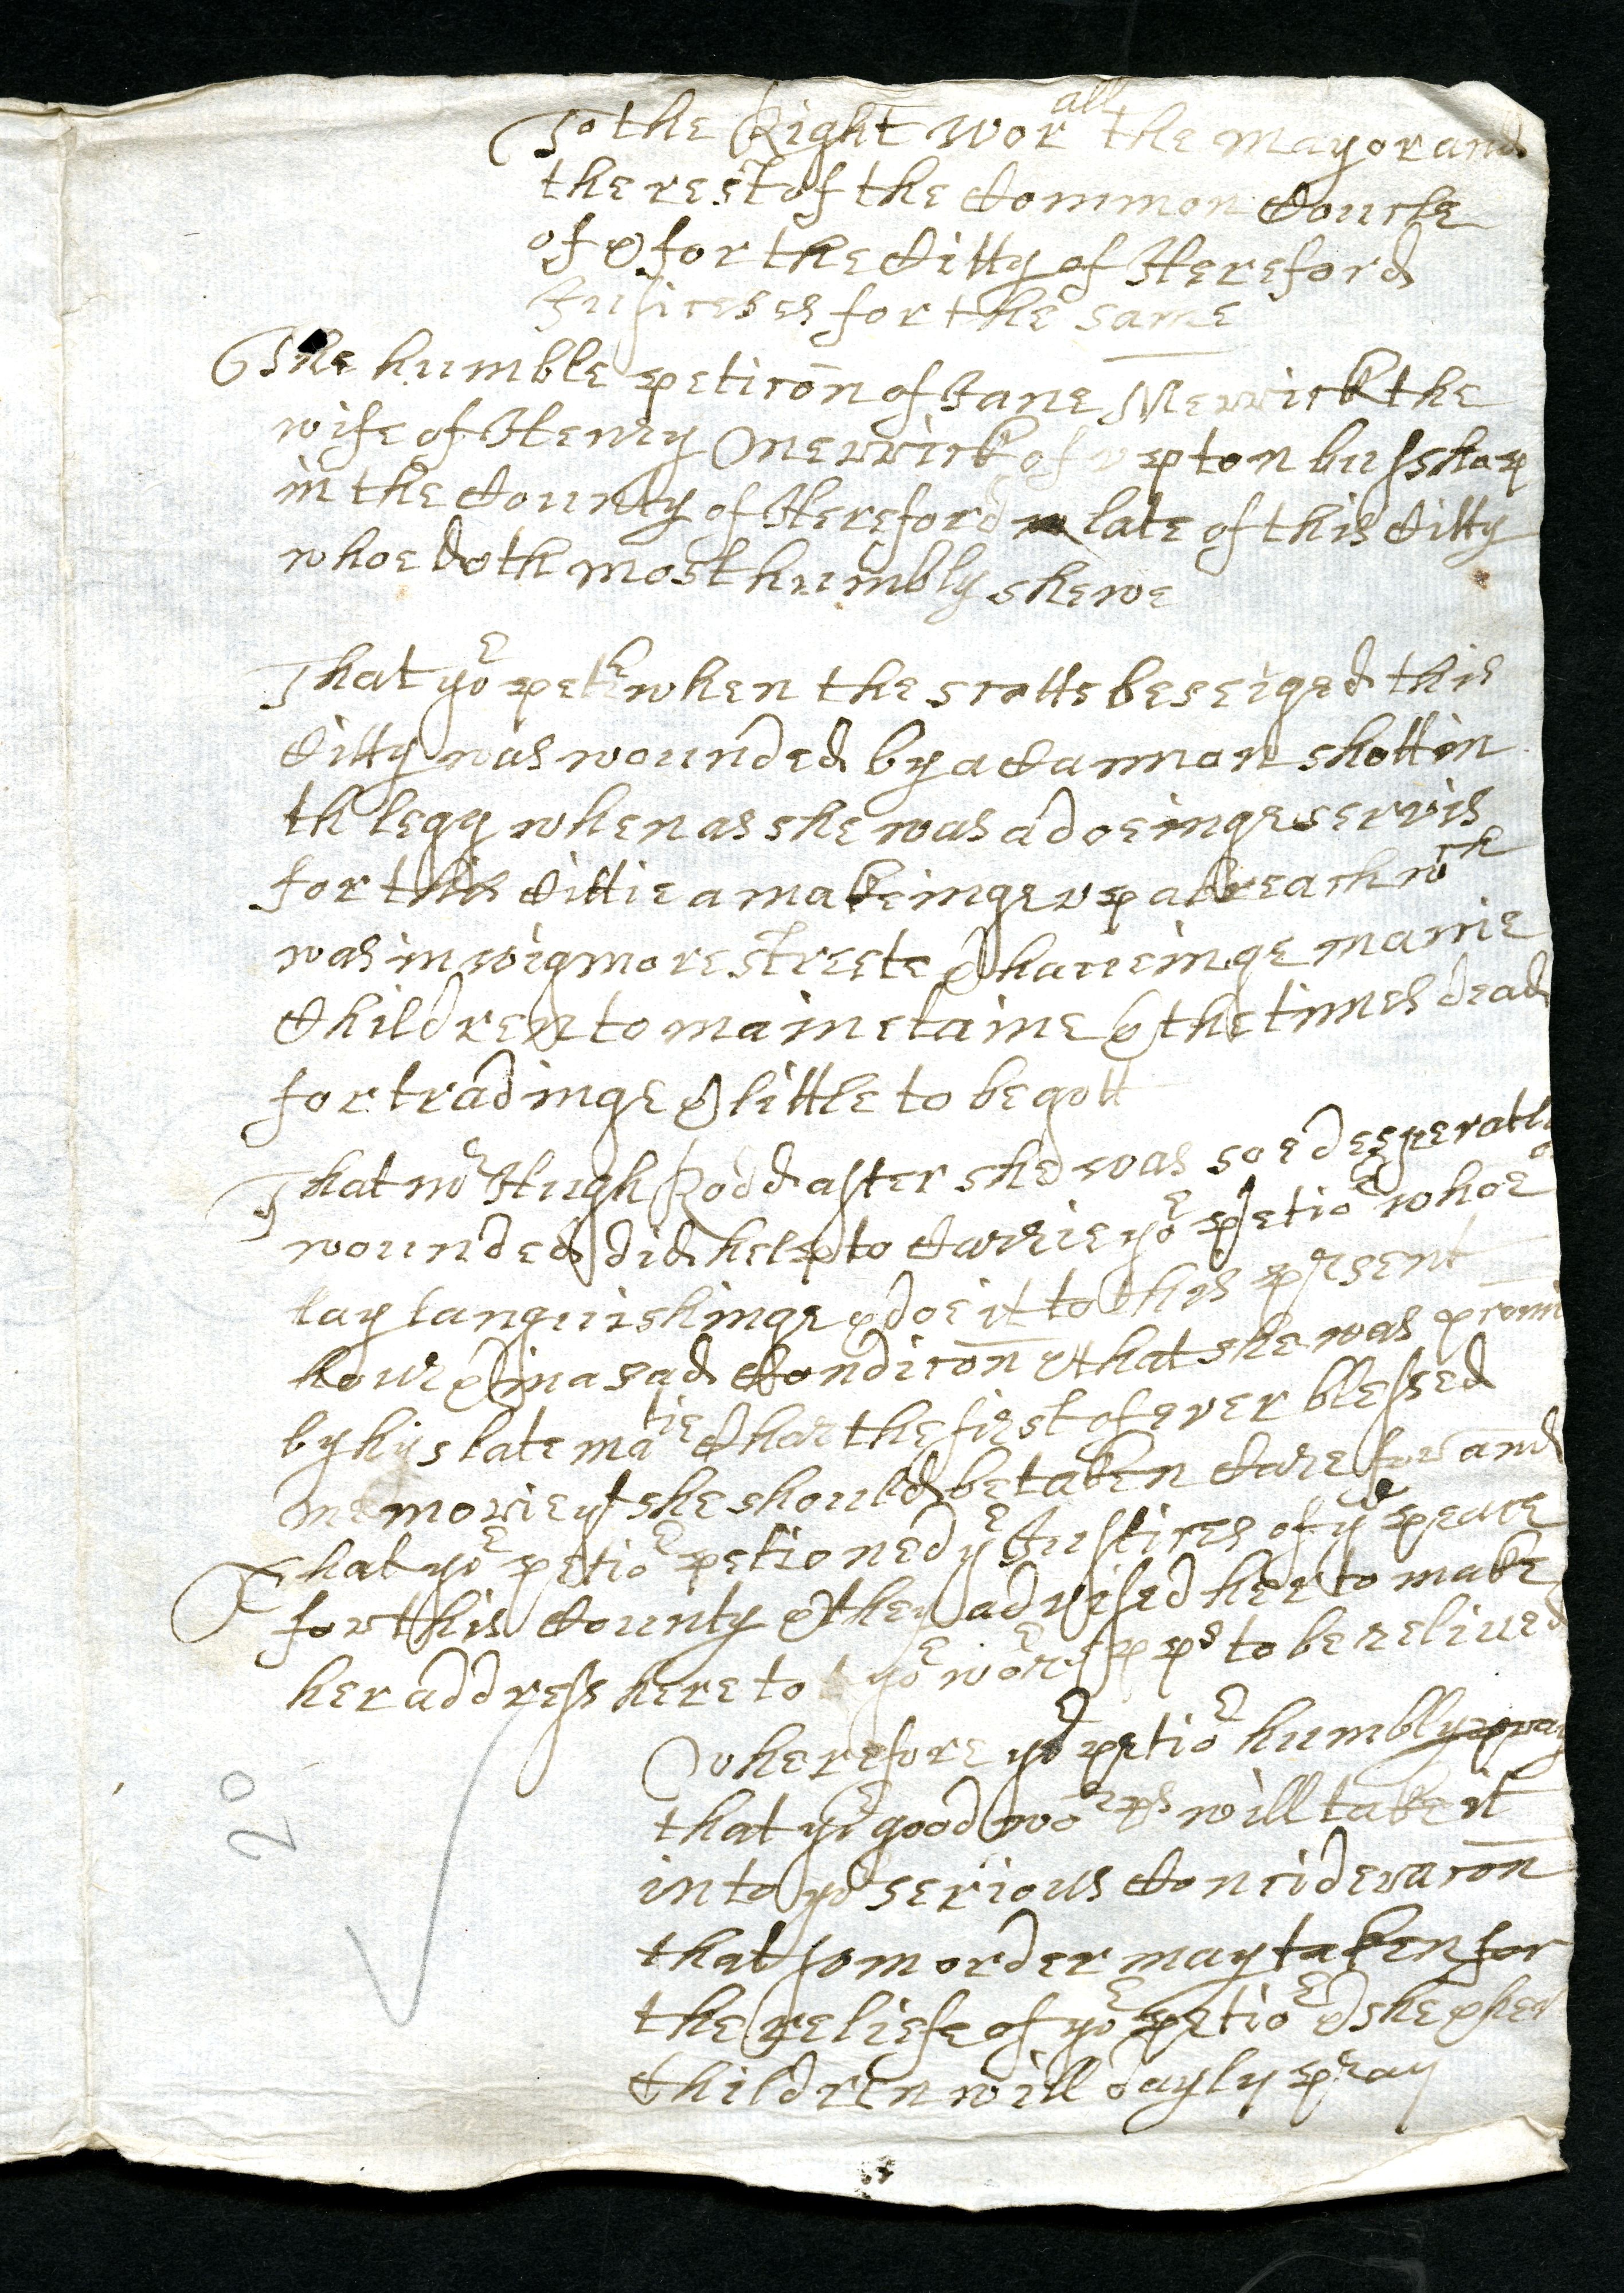 To the Right wor^all the mayor and
the rest of the Common Coucle
of & for the Citty of Hereford
Jusiceses for the same
The humble peticōn of Jane Merrick the
wife of Henry Merrick of vpton busshop
in the County of Hereford late of this Citty
whoe doth most humbly shewe
That yo^r pet^r when the scotts beseiged this
Citty was wounded by a Cannon shott in
th legg when as she was a doeinge servis
for this Cittie a makeinge vp a breach w^ch
was in wigmore streete & haueinge manie
Children to mainetaine & the times dead
for tradinge & little to be gott
That m^r Hugh Rodd after she was soe desperatly
wounded did help to Carrie yo^r petio^r whoe
lay languishinge & doe it to this present
hour & in a sad Condicōn & that she was promi
by hys late ma^tie Char the first of ever blessed
memorie y^t she should be taken Care for and
That yo^r petio^r petioned y^e Justices of y^e peace
for this County & they advised her to make
her address here to yo^r wor^rspp^s to be relived
Wherefore yo^r petio^r humbly pray
that y^r good wo^rps will take it
into yo^r serious Concideracōn
that som order may taken for
the reliefe of yo^r petio^r & she & her
Children will dayly pray
2º